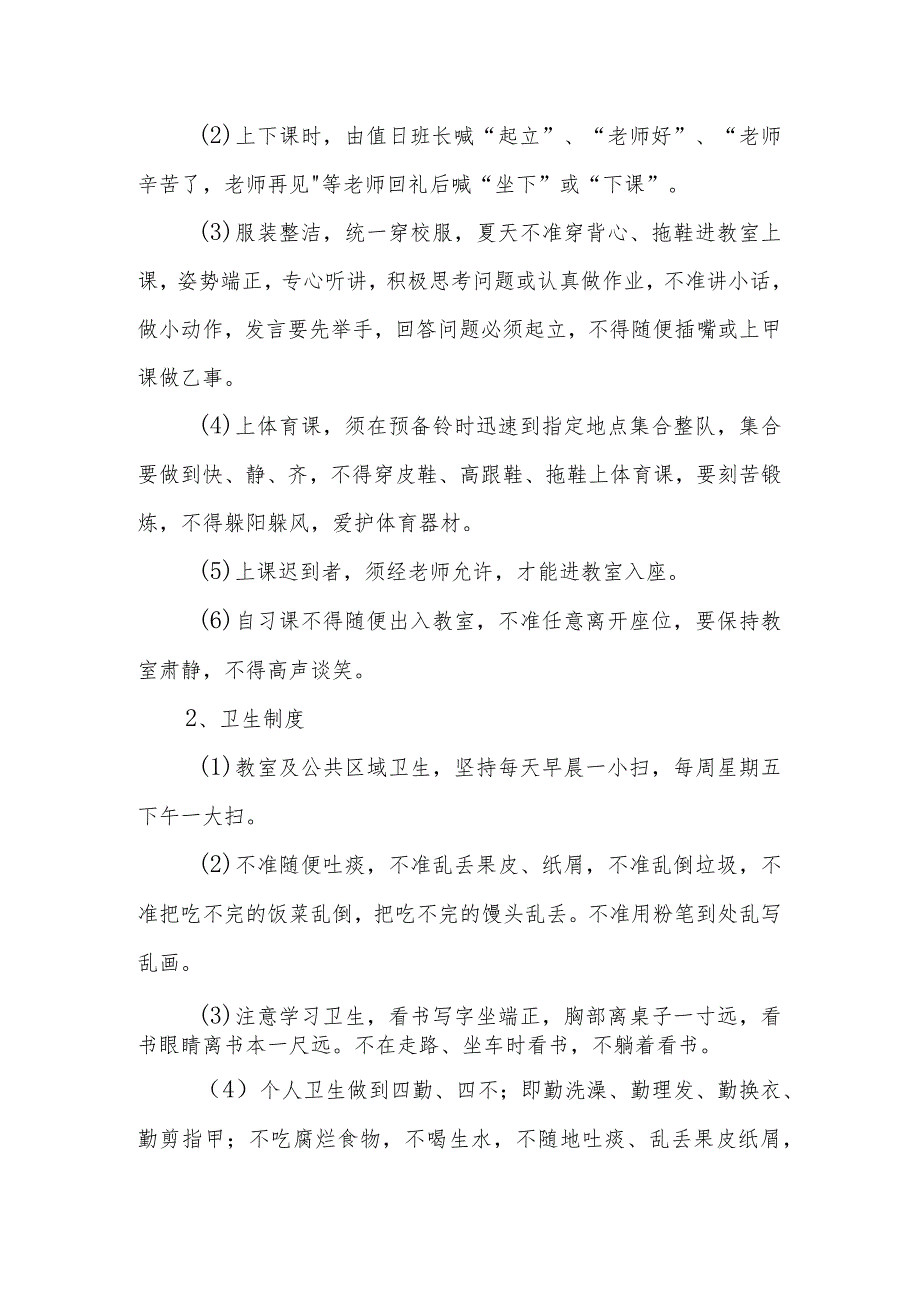 (2)上下课时，由值日班长喊“起立”、“老师好”、“老师
辛苦了，老师再见"等老师回礼后喊“坐下”或“下课”。
(3)服装整洁，统一穿校服，夏天不准穿背心、拖鞋进教室上
课，姿势端正，专心听讲，积极思考问题或认真做作业，不准讲小话，
做小动作，发言要先举手，回答问题必须起立，不得随便插嘴或上甲
课做乙事。
(4)上体育课，须在预备铃时迅速到指定地点集合整队，集合
要做到快、静、齐，不得穿皮鞋、高跟鞋、拖鞋上体育课，要刻苦锻
炼，不得躲阳躲风，爱护体育器材。
(5)上课迟到者，须经老师允许，才能进教室入座。
(6)自习课不得随便出入教室，不准任意离开座位，要保持教
室肃静，不得高声谈笑。
2、卫生制度
(1)教室及公共区域卫生，坚持每天早晨一小扫，每周星期五
下午一大扫。
(2)不准随便吐痰，不准乱丢果皮、纸屑，不准乱倒垃圾，不
准把吃不完的饭菜乱倒，把吃不完的馒头乱丢。不准用粉笔到处乱写
乱画。
(3)注意学习卫生，看书写字坐端正，胸部离桌子一寸远，看
书眼睛离书本一尺远。不在走路、坐车时看书，不躺着看书。
（4）个人卫生做到四勤、四不；即勤洗澡、勤理发、勤换衣、
勤剪指甲；不吃腐烂食物，不喝生水，不随地吐痰、乱丢果皮纸屑，